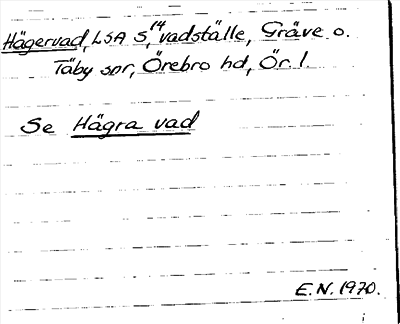 Hägervad, LSA S,14 vadställe, Gräve o.
Täby snr, Örebro hd, Ör. l.
Se Hägra vad
E.N. 1970.